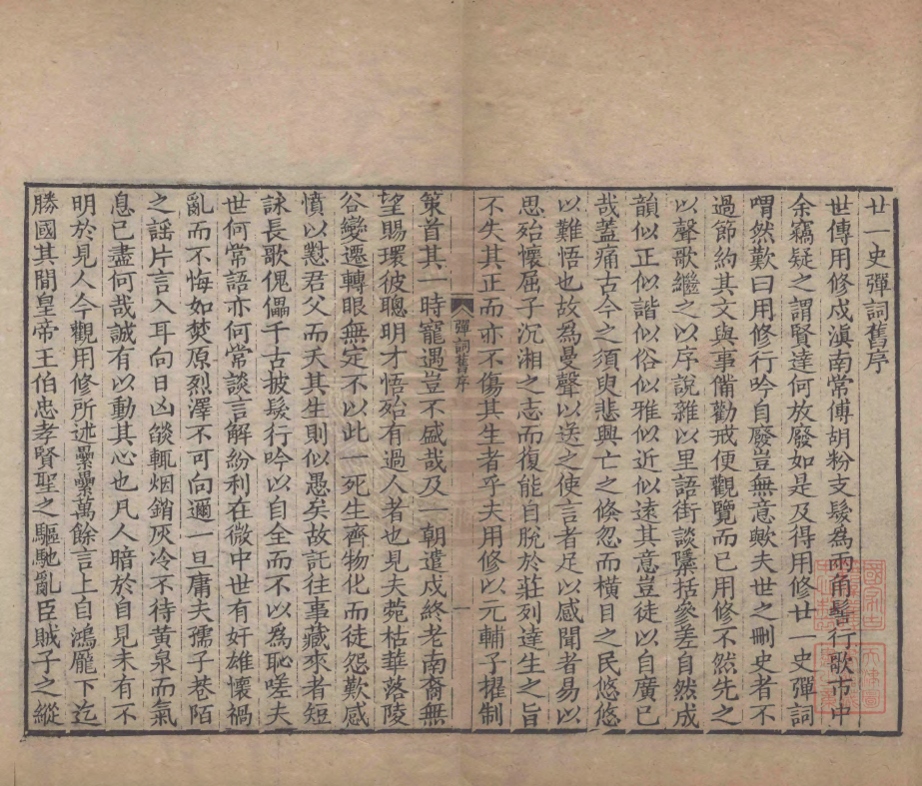 廿一史彈詞舊序
世傳用修戍滇南常傅胡粉支髮為兩角髻行歌市中
余竊疑之謂賢達何放廢如是及得用修廿一史彈詞
喟然歎曰用修行吟自廢豈無意歟夫世之刪史者不
過節約其文與事備勸戒便觀覽而已用修不然先之
以聲歌繼之以序說雜以里語街談隱括參差自然成
韻似正似諧似俗似雅似近似遠其意豈徒以自廣已
哉蓋痛古今之須臾悲興亡之倏忽而橫目之民悠悠
以難悟也故為曼聲以送之使言者足以感聞者易以
思殆懷屈子沉湘之志而復能自脫於莊列達生之旨
不失其正而亦不傷其生者乎夫用修以元輔子擢制
彈詞舊序
一
策首其一時寵遇豈不盛哉及一朝遣戍終老南裔無
望賜環彼聰明才悟殆有過人者也見夫菀枯華落陵
谷變遷轉眼無定不以此一死生齊物化而徒怨歎感
憤以懟君父而夭其生則似愚矣故託往事藏來者短
詠長歌傀儡千古披髮行吟以自全而不以為恥嗟夫
世何常語亦何常談言解紛利在微中世有奸雄懷禍
亂而不悔如焚原烈澤不可向邇一旦庸夫孺子巷陌
之謡片言入耳向日凶燄輒烟銷灰冷不待黄泉而氣
息已盡何哉誠有以動其心也凡人暗於自見未有不
明於見人今觀用修所述纍纍萬餘言上自鴻厖下迄
勝國其間皇帝王伯忠孝賢聖之驅馳亂臣賊子之縱